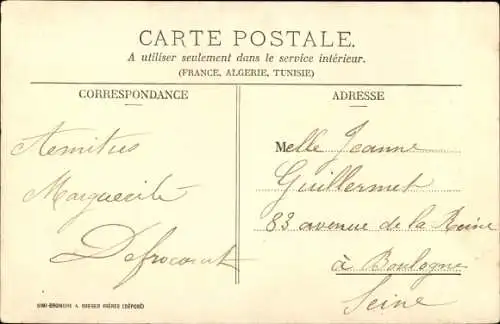 CARTE POSTALE.
A utiliser seulement dans le service intérieur.
(FRANCE, ALGERIE, TUNISIE)
CORRESPONDANCE
ADRESSE
Amitiés
Marguerite
Melle Jeanne
Guillermet
83 avenue de la Reine
à Boulogne
Seine